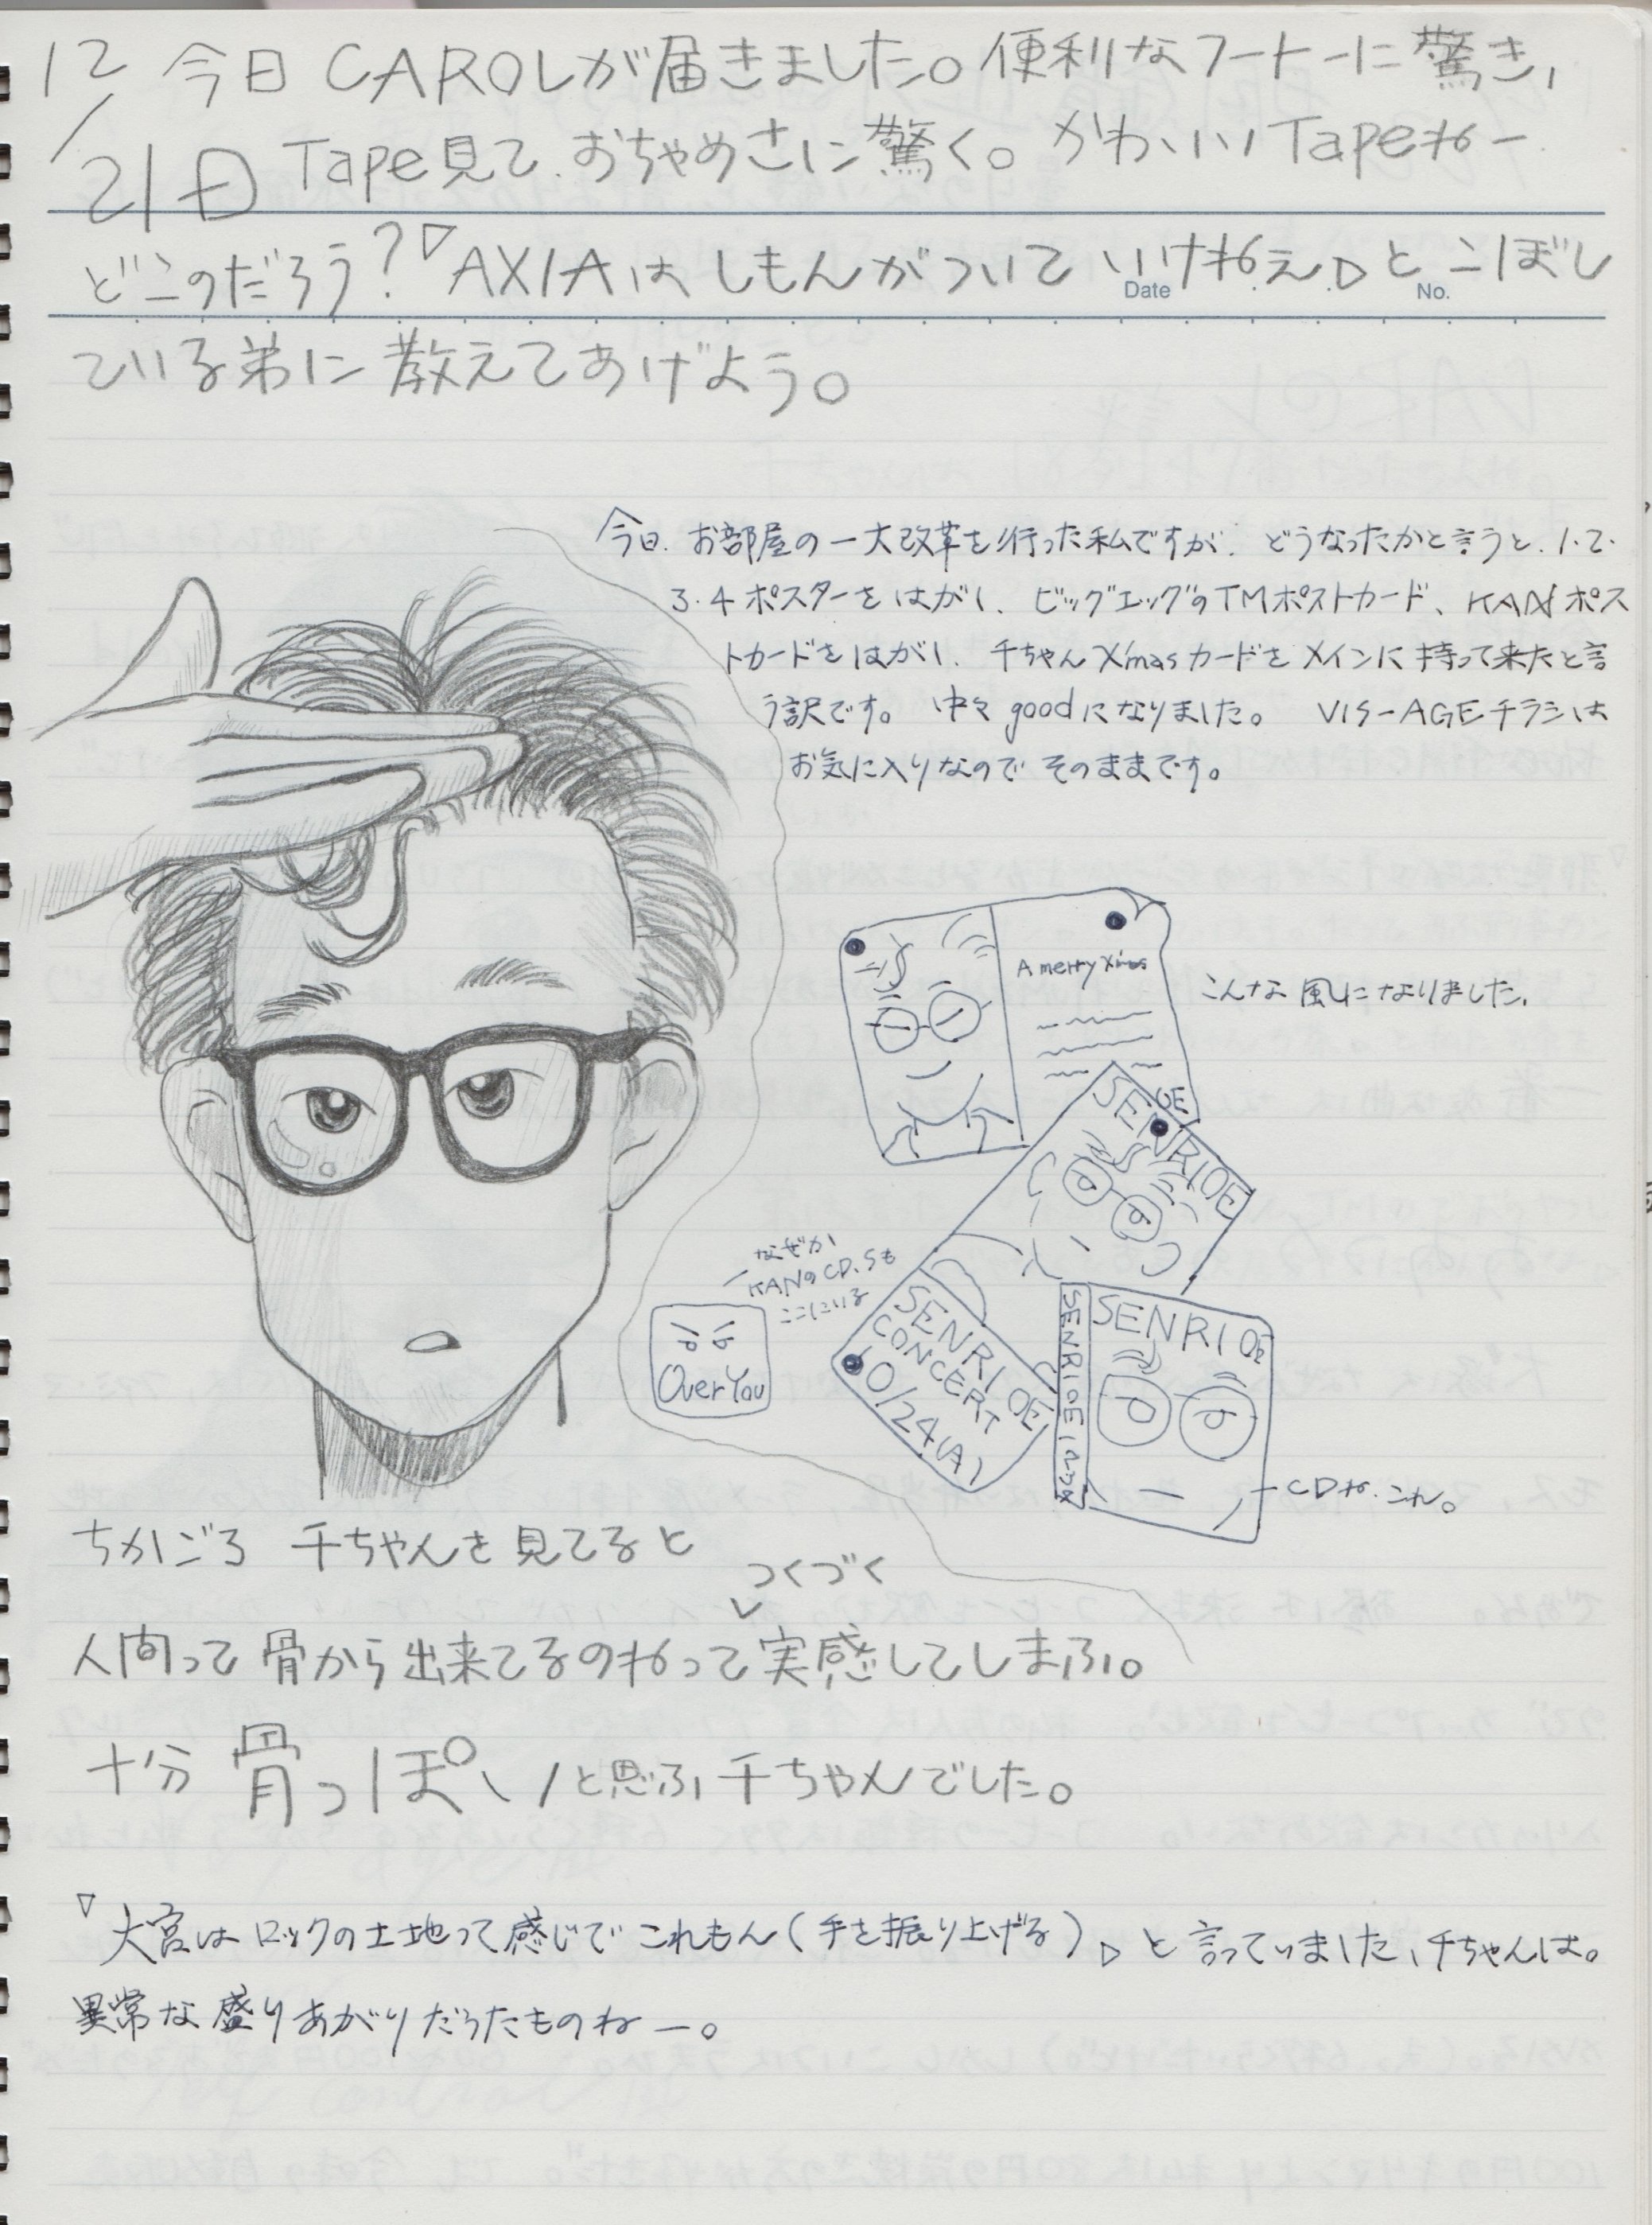 12/21日
今日CAROLが届きました。便利なフートーに驚き、
Tape見て、おちゃめさに驚く。かわいいTapeねー
どこのだろう?『AXIAはしもんがついていけねえ。』とこぼし
Date
No.
ている弟に教えてあげよう。
今日、お部屋の一大改革を行った私ですが、どうなったかと言うと、1・2・
3・4ポスターをはがし、ビッグエッグのTMポストカード、KANポス
トカードをはがし、千ちゃんX'masカードをメインに持って来たと言
う訳です。中々goodになりました。VIS-AGEチラシは
お気に入りなのでそのままです。
A merry X'mas
こんな風になりました。
SENRI OE
なぜか
KANのCD、Sも
ここにいる
Over You
SENRI OE
CONCERT
10/24(A)
SENRI OE
SENRI OE
CDね、これ。
ちかごろ千ちゃんを見てると
つくづく
人間って骨から出来てるのねって実感してしまふ。
十分骨っぽいと思ふ千ちゃんでした。
『大宮はロックの土地って感じでこれもん(手を振り上げる)。』と言っていました、千ちゃんは。
異常な盛りあがりだったものねー。